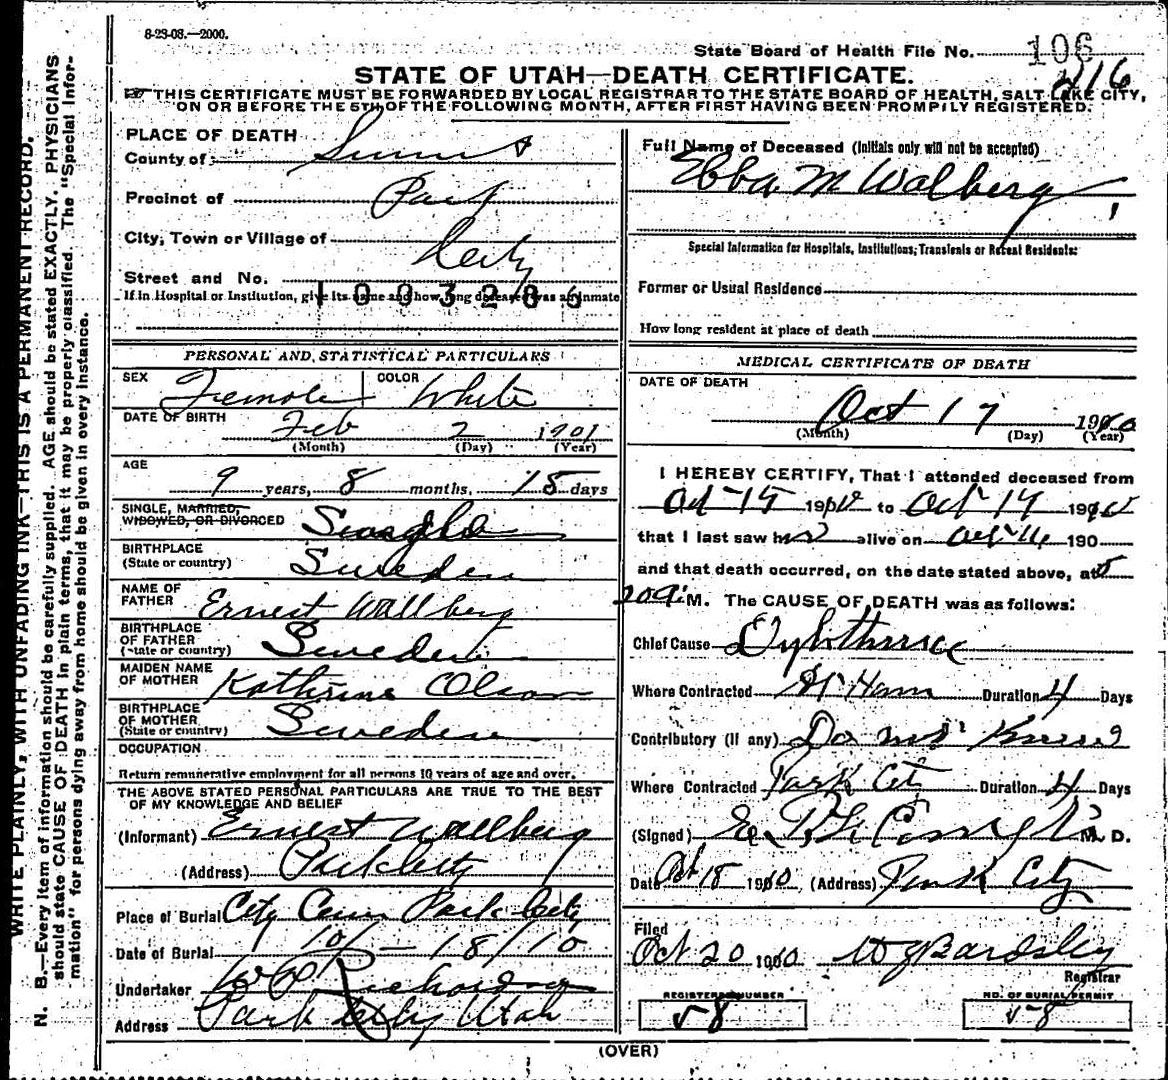 8-23-08.—2000.
State Board of Health File No. 106
216
STATE OF UTAH—DEATH CERTIFICATE.
THIS CERTIFICATE MUST BE FORWARDED BY LOCAL REGISTRAR TO THE STATE BOARD OF HEALTH, SALT LAKE CITY,
ON OR BEFORE THE 5TH OF THE FOLLOWING MONTH, AFTER FIRST HAVING BEEN PROMPTLY REGISTERED.
WRITE PLAINLY, WITH UNFADING INK—THIS IS A PERMANENT RECORD.
N. B.—Every item of information should be carefully supplied. AGE should be stated EXACTLY. PHYSICIANS
should state CAUSE OF DEATH in plain terms, that it may be properly classified. The "Special Infor-
mation" for persons dying away from home should be given in every instance.
PLACE OF DEATH
County of Summit
Precinct of Park
City, Town or Village of
City
Street and No.
1003286
If in Hospital or Institution, give its name and how long deceased was an inmate
PERSONAL AND STATISTICAL PARTICULARS
SEX Female COLOR White
DATE OF BIRTH Feb 2 1901
(Month) (Day) (Year)
AGE
9 years, 8 months, 15 days
SINGLE, MARRIED,
WIDOWED, OR DIVORCED Single
BIRTHPLACE
(State or country) Sweden
NAME OF
FATHER Ernest Wallberg
BIRTHPLACE
OF FATHER
(State or country) Sweden
MAIDEN NAME
OF MOTHER Kathrine Olson
BIRTHPLACE
OF MOTHER
(State or country) Sweden
OCCUPATION
Return remunerative employment for all persons 10 years of age and over.
THE ABOVE STATED PERSONAL PARTICULARS ARE TRUE TO THE BEST
OF MY KNOWLEDGE AND BELIEF
(Informant) Ernest Wallberg
(Address) Park City
Place of Burial City Cem Park City
Date of Burial 10/18/10
Undertaker W P Richardson
Address Park City Utah
Full Name of Deceased (Initials only will not be accepted)
Ebba M Walberg
Special Information for Hospitals, Institutions, Transients or Recent Residents:
Former or Usual Residence
How long resident at place of death
MEDICAL CERTIFICATE OF DEATH
DATE OF DEATH
Oct 17 1910
(Month) (Day) (Year)
I HEREBY CERTIFY, That I attended deceased from
Oct 1910 to Oct 1910
that I last saw her alive on Oct 190
and that death occurred, on the date stated above, at 5
M. The CAUSE OF DEATH was as follows:
Chief Cause Diphtheria
Where Contracted At Home Duration 4 Days
Contributory (if any) Do not Know
Where Contracted Park City Duration 4 Days
(Signed) M. D.
Date Oct 18 1910 (Address) Park City
Filed
Oct 20 1910 W J Bardsley
Registrar
REGISTERED NUMBER
58
NO. OF BURIAL PERMIT
58
(OVER)